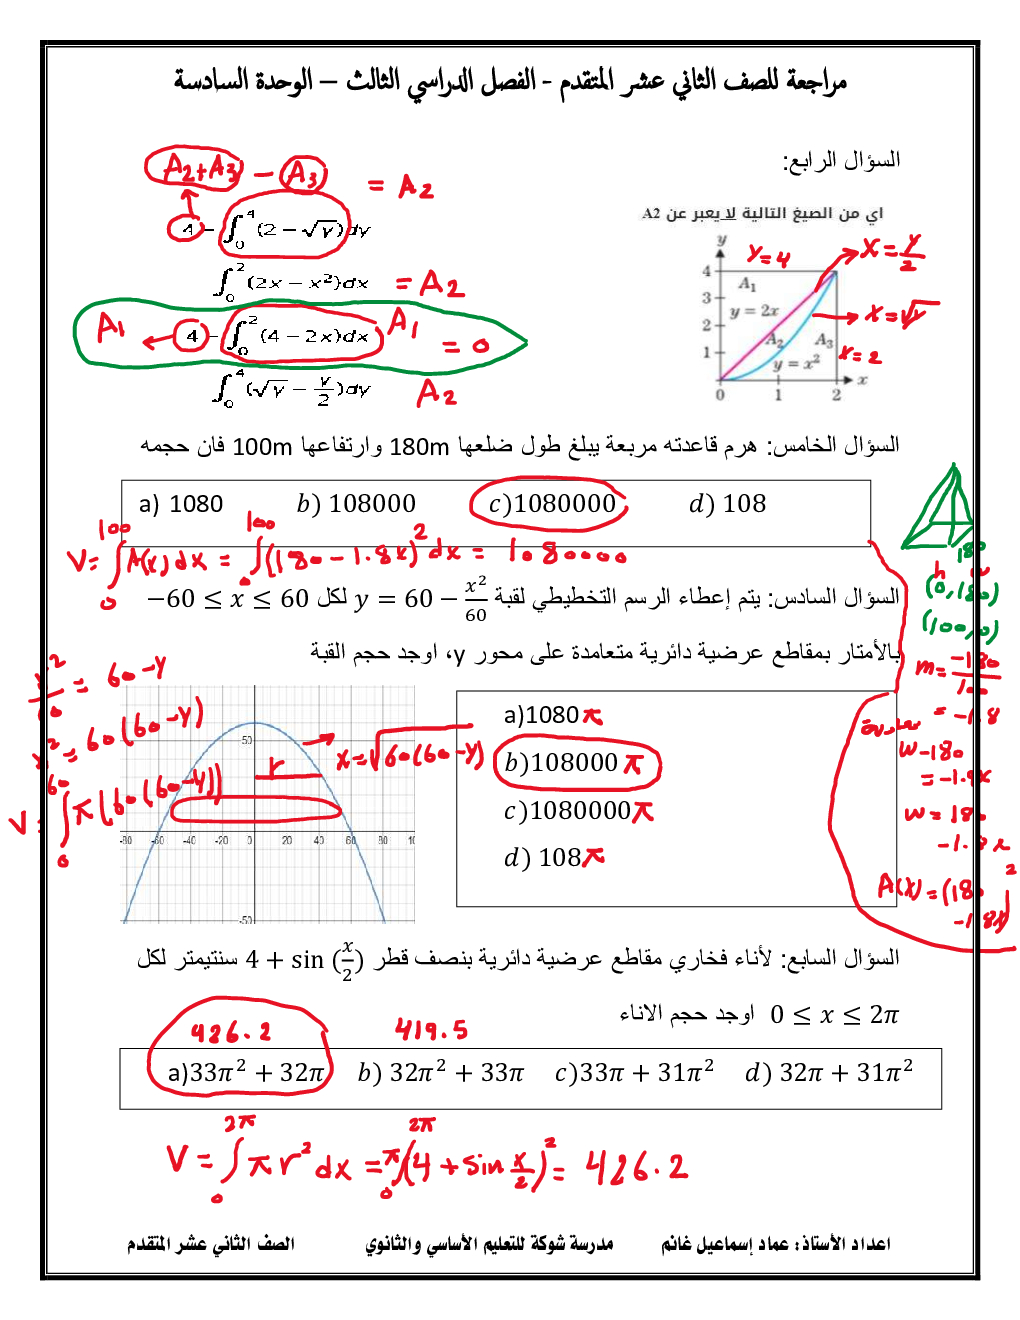 مراجعة للصف الثاني عشر المتقدم - الفصل الدراسي الثالث – الوحدة السادسة
السؤال الرابع:
اي من الصيغ التالية لا يعبر عن A2
A₂+A₃ − A₃ = A₂
4 − ∫₀⁴(2 − √y)dy
∫₀²(2x − x²)dx = A₂
A₁ ← 4 − ∫₀²(4 − 2x)dx A₁ = 0
∫₀⁴(√y − y/2)dy A₂
y
y=4
x = y/2
4
A₁
3
y = 2x
x=√y
2
A₂ A₃
x=2
1
y = x²
x
0 1 2
السؤال الخامس: هرم قاعدته مربعة يبلغ طول ضلعها 180m وارتفاعها 100m فان حجمه
a) 1080 b) 108000 c)1080000 d) 108
V= ∫₀¹⁰⁰ A(x) dx = ∫₀¹⁰⁰ (180 − 1.8x)² dx = 1080000
180
h w
(0,180)
(100,0)
m= −180/100
= −1.8
w−180
w = 180
−1.8x
A(x) = (180 − 1.8x)²
السؤال السادس: يتم إعطاء الرسم التخطيطي لقبة y = 60 − x²/60 لكل −60 ≤ x ≤ 60
بالأمتار بمقاطع عرضية دائرية متعامدة على محور y، اوجد حجم القبة
= 60−y
= 60(60−y)
V= ∫₀⁶⁰ π(60(60−y))
r
x=√60(60−y)
50
-80 -60 -40 -20 0 20 40 60 80
-50
a)1080 π
b)108000 π
c)1080000 π
d) 108 π
السؤال السابع: لأناء فخاري مقاطع عرضية دائرية بنصف قطر 4 + sin (x/2) سنتيمتر لكل
0 ≤ x ≤ 2π اوجد حجم الاناء
426.2 419.5
a)33π² + 32π b) 32π² + 33π c)33π + 31π² d) 32π + 31π²
V = ∫₀^2π π r² dx = π∫₀^2π (4 + sin x/2)² = 426.2
اعداد الأستاذ: عماد إسماعيل غانم مدرسة شوكة للتعليم الأساسي والثانوي الصف الثاني عشر المتقدم